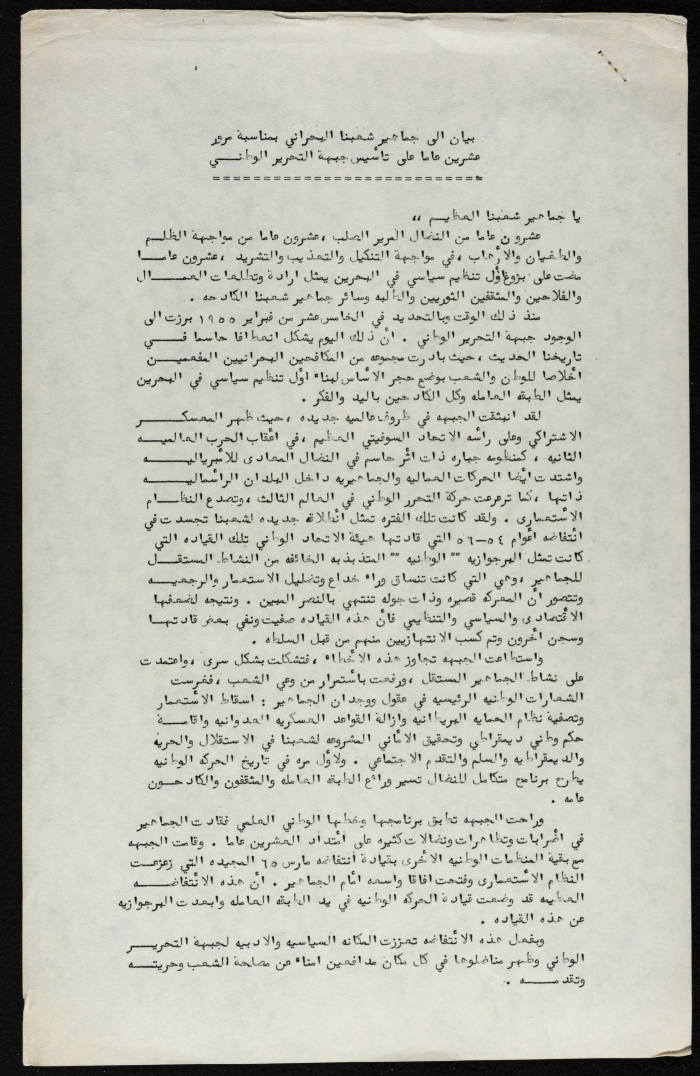 بيان الى جماهير شعبنا البحراني بمناسبة مرور
عشرين عاما على تأسيس جبهة التحرير الوطنــي
============================
يا جماهير شعبنا العظيـم ،،
عشرون عاما من النضال المرير الصلب ، عشرون عاما من مواجهة الظلـم
والطغيان والأرهاب ، في مواجهة التنكيل والتعذيب والتشريد ، عشرون عامـا
مضت على بزوغ أول تنظيم سياسي في البحرين يمثل ارادة وتطلعات العمـال
والفلاحين والمثقفين الثوريين والطلبه وسائر جماهير شعبنا الكادحه .
منذ ذلك الوقت وبالتحديد في الخامس عشر من فبراير ١٩٥٥ برزت الى
الوجود جبهة التحرير الوطني . أن ذلك اليوم يشكل انعطافا حاسما فـــي
تاريخنا الحديث ، حيث بادرت مجموعه من المكافحين البحرانيين المفعميـن
أخلاصا للوطن والشعب بوضع حجر الأساس لبناء أول تنظيم سياسي في البحرين
يمثل الطبقه العامله وكل الكادحين باليد والفكر .
لقد انبثقت الجبهه في ظروف عالميه جديده ، حيث ظهر المعسكـر
الاشتراكي وعلى رأسه الاتحاد السوفيتي العظيم ، في أعقاب الحرب العالميـه
الثانيه ، كمنظومه جباره ذات أثر حاسم في النضال المعادى للأمبرياليـه
واشتدت أيضا الحركات العماليه والجماهيريه داخل البلدان الرأسماليــه
ذاتها ، كما ترعرعت حركة التحرر الوطني في العالم الثالث ، وتصدع النظـام
الأستعمارى . ولقد كانت تلك الفتره تمثل أنطلاقة جديده لشعبنا تجسدت في
أنتفاضه أعوام ٥٤-٥٦ التي قادتها هيئة الاتحاد الوطني تلك القياده التي
كانت تمثل البرجوازيه "" الوطنيه "" المتذبذبه الخائفه من النشاط المستقـل
للجماهير ، وهي التي كانت تنساق وراء خداع وتضليل الاستعمار والرجعيـه
وتتصور أن المعركه قصيره وذات جوله تنتهي بالنصر المبين . ونتيجه لضعفها
الأقتصادى والسياسي والتنظيمي فأن هذه القياده صفيت ونفي بعض قادتهـا
وسجن أخرون وتم كسب الانتهازيين منهم من قبل السلطه .
واستطاعت الجبهه تجاوز هذه الأخطاء ، فتشكلت بشكل سرى ، واعتمدت
على نشاط الجماهير المستقل ، ورفعت بأستمرار من وعي الشعب ، فغرست
الشعارات الوطنيه الرئيسيه في عقول ووجدان الجماهير : اسقاط الأستعمار
وتصفية نظام الحمايه البريطانيه وازالة القواعد العسكريه العدوانيه واقامـة
حكم وطني ديمقراطي وتحقيق الأماني المشروعه لشعبنا في الاستقلال والحريه
والديمقراطيه والسلم والتقدم الاجتماعي . ولأول مره في تاريخ الحركه الوطنيه
يطرح برنامج متكامل للنضال تسير وراءه الطبقه العامله والمثقفون والكادحـون
عامه .
وراحت الجبهه تطبق برنامجها وخطها الوطني العلمي فقادت الجماهير
في أضرابات وتظاهرات ونضالات كثيره على أمتداد العشرين عاما . وقامت الجبهه
مع بقية المنظمات الوطنيه الأخرى بقيادة أنتفاضه مارس ٦٥ المجيده التي زعزعت
النظام الأستعمارى وفتحت افاقا واسعه أمام الجماهير . أن هذه الانتفاضــه
العظيمه قد وضعت قيادة الحركه الوطنيه في يد الطبقه العامله وابعدت البرجوازيه
عن هذه القياده .
وبفعل هذه الأنتفاضه تعززت المكانه السياسيه والادبيه لجبهة التحريــر
الوطني وظهر مناضلوها في كل مكان مدافعين امناء عن مصلحة الشعب وحريتــه
وتقدمـــه .